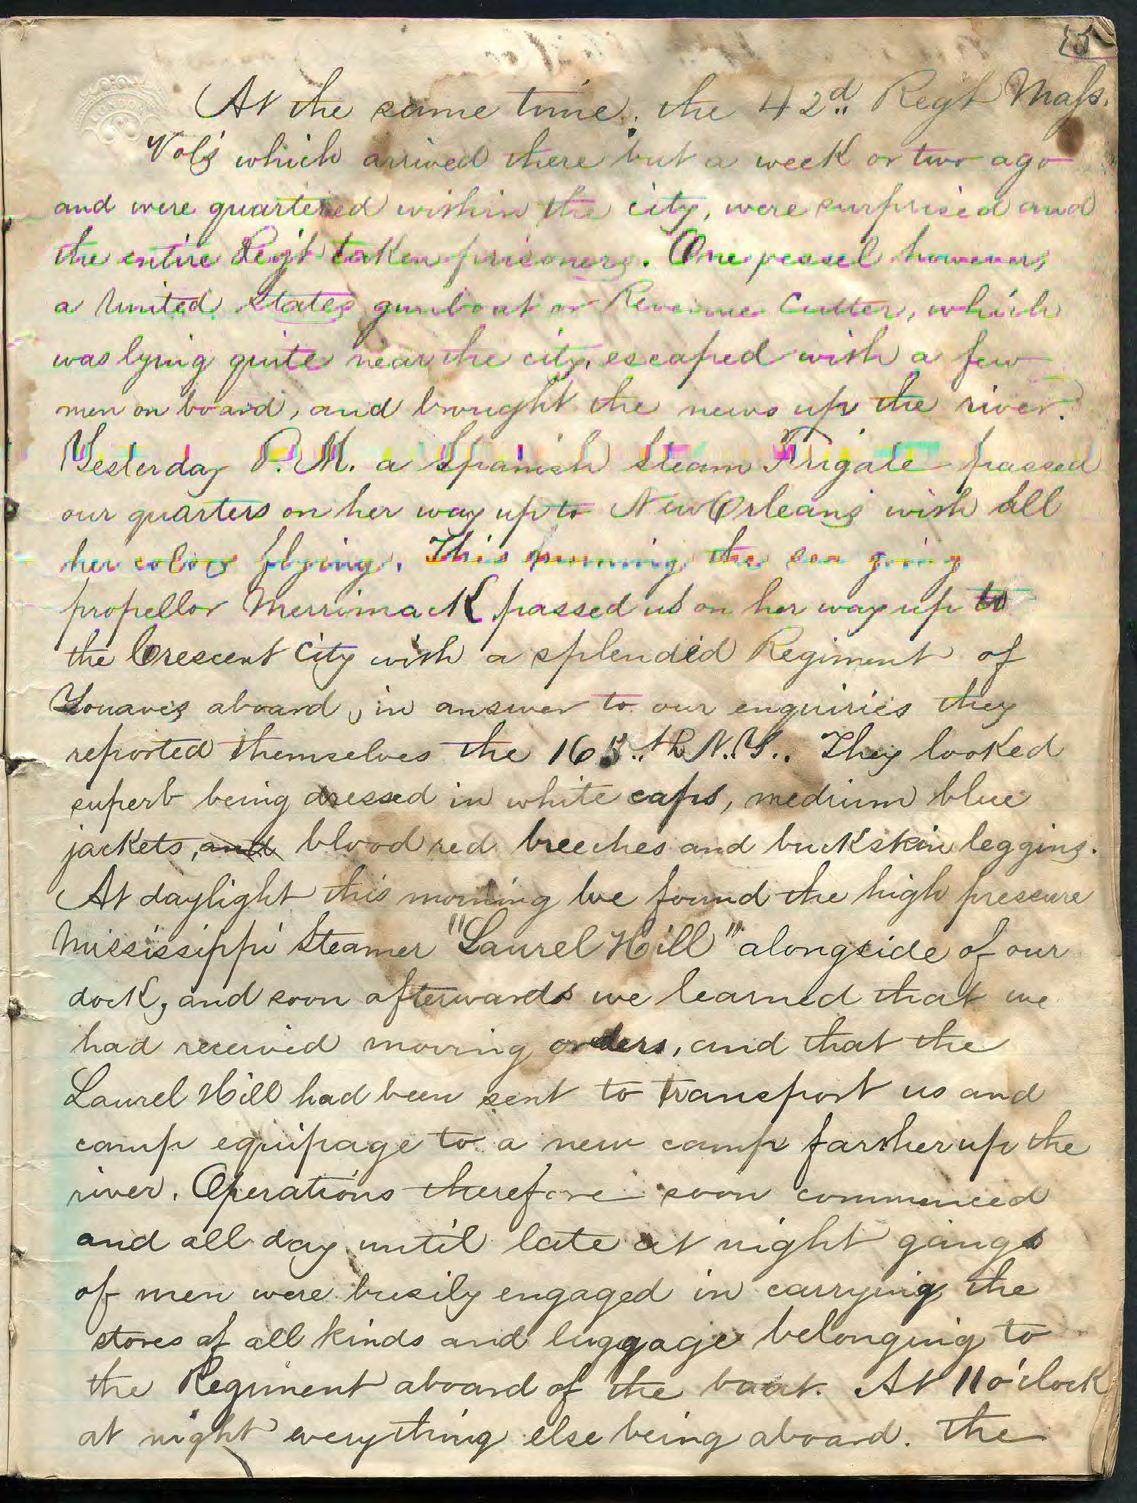 45
At the same time, the 42d.. Regt Mass.
Vols which arrived there but a week or two ago
and were quartered within the city, were surprised and
the entire Regt taken prisoners. One vessel however,
a United States gunboat or Revenue Cutter, which
was lying quite near the city, escaped with a few
men on board, and brought the news up the river.
Yesterday P.M. a Spanish Steam Frigate passed
our quarters on her way up to New Orleans with all
her colors flying. This morning the sea going
propellor Merrimack passed us on her way up to
the Crescent City with a splendid Regiment of
Zouaves aboard, in answer to our enquiries they
reported themselves the 165..th N.Y.. They looked
superb being dressed in white caps, medium blue
jackets, and blood red breeches and buckskin leggins.
At daylight this morning we found the high pressure
Mississippi Steamer "Laurel Hill" alongside of our
dock, and soon afterwards we learned that we
had received moving orders, and that the
Laurel Hill had been sent to transport us and
camp equipage to a new camp farther up the
river. Operations therefore soon commenced
and all day until late at night gangs
of men were busily engaged in carrying the
stores of all kinds and luggage belonging to
the Regiment aboard of the boat. At 11 o'clock
at night everything else being aboard. the